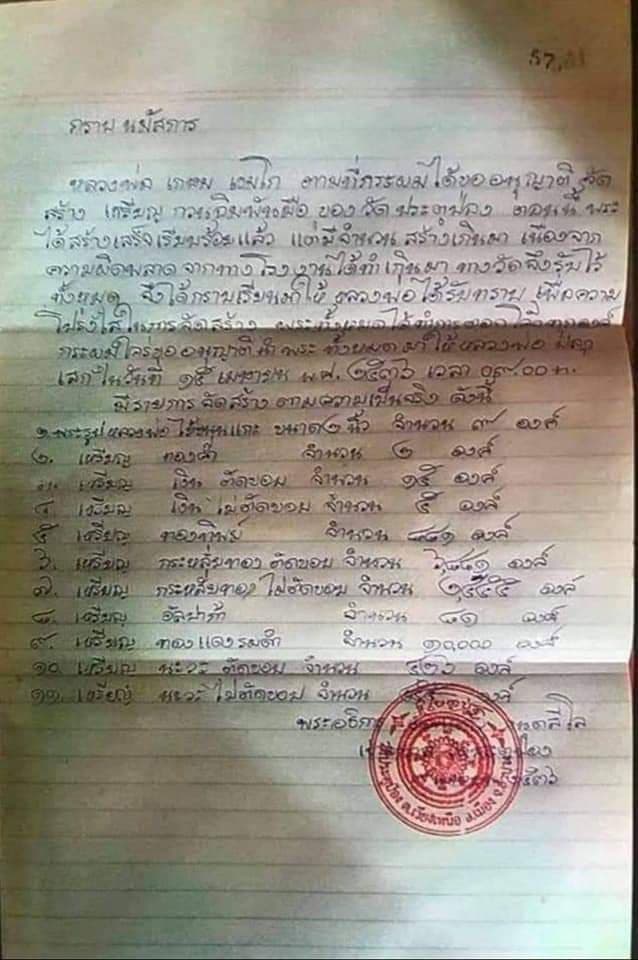 กราบ นมัสการ
หลวงพ่อ เกษม เขมโก ตามที่กระผมได้ขออนุญาติ จัด
สร้าง เหรียญ กวนอิมพันมือ ของ วัด ประตูป่อง ตอนนี้ พระ
ได้สร้างเสร็จเรียบร้อยแล้ว แต่มีจำนวน สร้างเกินมา เนื่องจาก
ความผิดพลาด จากทางโรงงานได้ทำเกินมา ทางวัดจึงรับไว้
ทั้งหมด จึงได้กราบเรียนมาให้ หลวงพ่อ ได้รับทราบ เพื่อความ
โปร่งใส ในการจัดสร้าง พระทั้งหมดได้ทำการตอกโค๊ตทุกองค์
กระผมใคร่ขออนุญาติ นำ พระ ทั้งหมด มาให้ หลวงพ่อ
เสก ในวันที่ ๑๕ เมษายน พ.ศ. ๒๕๓๖ เวลา ๐๙.๐๐ น.
มีรายการ จัดสร้าง ตามความเป็นจริง ดังนี้
๑. พระรูปหลวงพ่อ ไม้ขนุนแกะ ขนาด ๒ นิ้ว จำนวน ๙ องค์
๒. เหรียญ ทองคำ จำนวน ๒ องค์
๓. เหรียญ เงิน ตัดขอบ จำนวน ๑๕ องค์
๔. เหรียญ เงิน ไม่ตัดขอบ จำนวน ๕ องค์
๕. เหรียญ ทองทิพย์ จำนวน องค์
๖. เหรียญ กระหลั่ยทอง ตัดขอบ จำนวน องค์
๗. เหรียญ กระหลั่ยทอง ไม่ตัดขอบ จำนวน องค์
๘. เหรียญ อัลปาก้า จำนวน องค์
๙. เหรียญ ทองแดงรมดำ จำนวน ๑๐,๐๐๐ องค์
๑๐. เหรียญ นะวะ ตัดขอบ จำนวน องค์
๑๑. เหรียญ นะวะ ไม่ตัดขอบ จำนวน องค์
พระอธิการ
วัดประตูป่อง ต.เวียงเหนือ อ.เมือง จ.ลำปาง